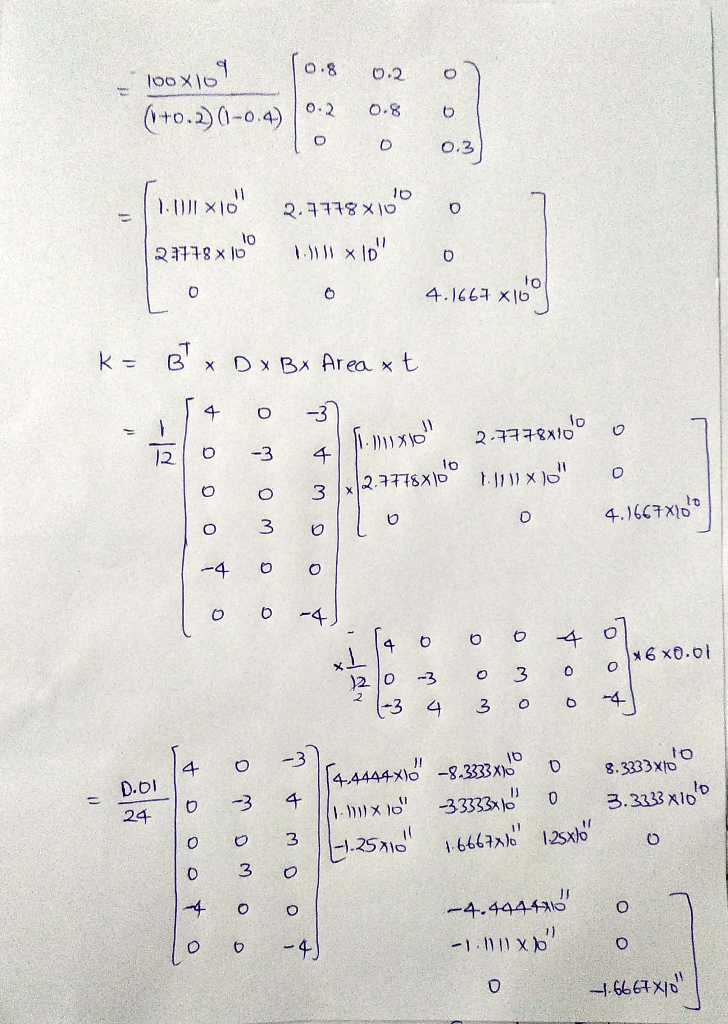 = 100×10^9 / (1+0.2)(1-0.4) [0.8 0.2 0
0.2 0.8 0
0 0 0.3]
= [1.1111×10^11 2.7778×10^10 0
27778×10^10 1.1111×10^11 0
0 0 4.1667×10^10]
K = B^T × D × B× Area × t
= 1/12 [4 0 -3
0 -3 4
0 0 3
0 3 0
-4 0 0
0 0 -4]
× [1.1111×10^11 2.7778×10^10 0
2.7778×10^10 1.1111×10^11 0
0 0 4.1667×10^10]
× 1/12 [4 0 0 0 -4 0
0 -3 0 3 0 0
-3 4 3 0 0 -4] ×6×0.01
2
= 0.01/24 [4 0 -3
0 -3 4
0 0 3
0 3 0
-4 0 0
0 0 -4]
[4.4444×10^11 -8.3333×10^10 0 8.3333×10^10
1.1111×10^11 -33333×10^11 0 3.3333×10^10
-1.25×10^11 1.6667×10^11 1.25×10^11 0
-4.4444×10^11 0
-1.1111×10^11 0
0 -1.6667×10^11]